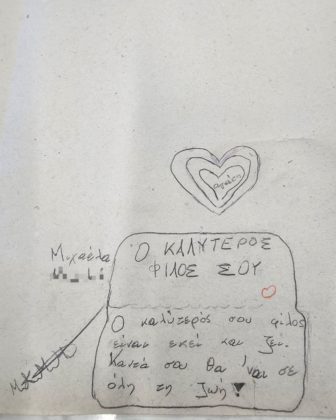 αγάπη
Μιχαέλα
Ό ΚΑΛΥΤΕΡΟΣ
ΦΙΛΟΣ ΣΟΥ
Ο καλύτερός σου φίλος
είναι εκεί και ζει.
Κοντά σου θα 'ναι σε
όλη τη ζωή